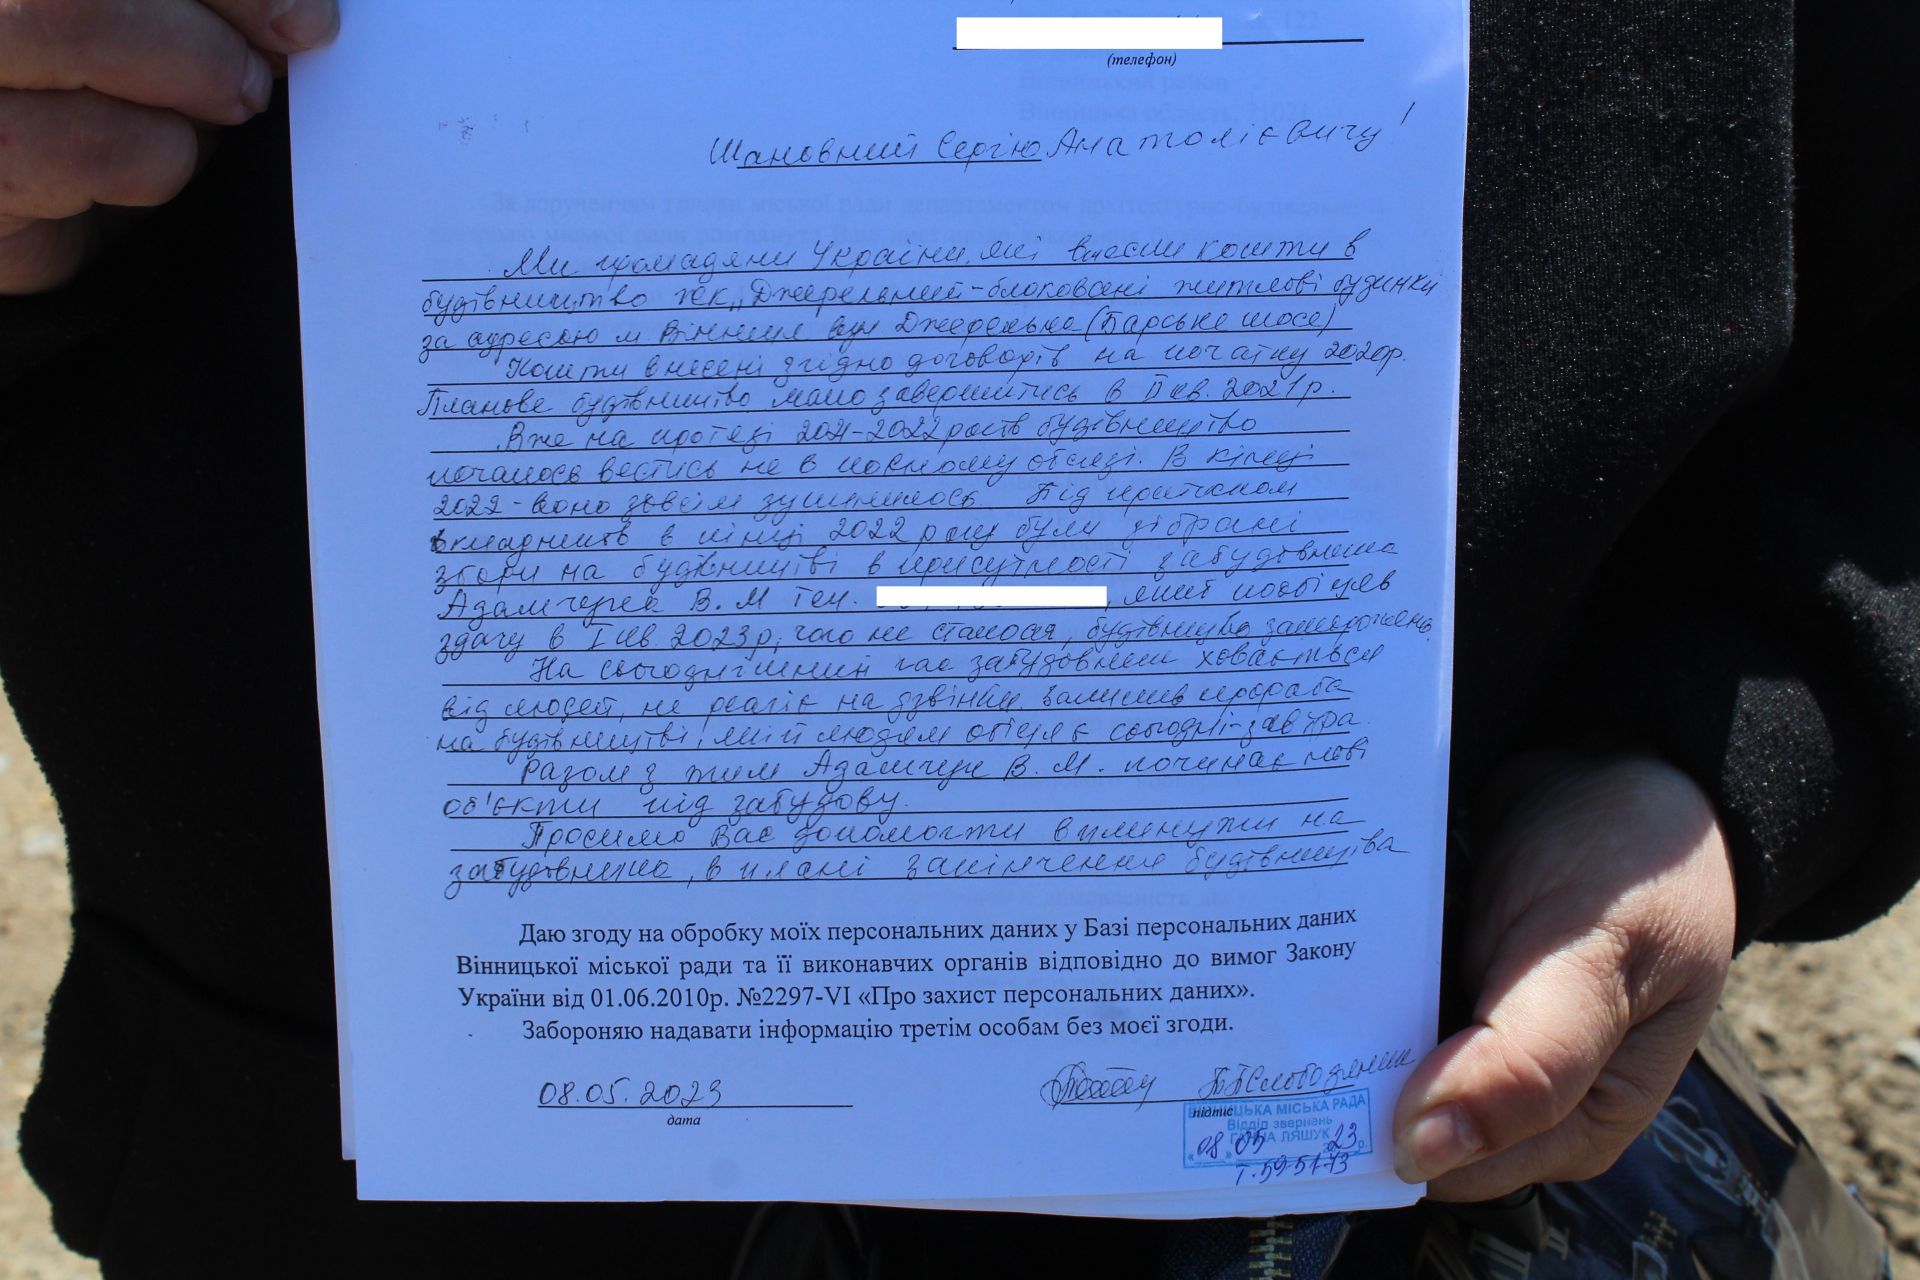 (телефон)
Шановний Сергію Анатолієвичу!
Ми громадяни України, які внесли кошти в
будівництво жк „Джерельний - блоковані житлові будинки
за адресою м. Вінниця вул Джерельна (Барське шосе)
Кошти внесені згідно договорів на початку 2020р.
Планове будівництво мало завершитись в II кв. 2021 р.
Вже на протязі 2021-2022 років будівництво
почалось вестись не в повному обсязі. В кінці
2022 - воно зовсім зупинилось. Під тиском
вкладників в кінці 2022 року були зібрані
збори на будівництві в присутності забудовника
Адамчука В. М тел. , який пообіцяв
здачу в I кв. 2023р, чого не сталося, будівництво заморожено.
На сьогоднішний час забудовник ховається
від людей, не реагує на дзвінки, залишив прораба
на будівництві, який людям обіцяє сьогодні-завтра.
Разом з тим Адамчук В. М. починає нові
об'єкти під забудову.
Просимо Вас допомогти вплинути на
забудовника, в плані закінчення будівництва
Даю згоду на обробку моїх персональних даних у Базі персональних даних
Вінницької міської ради та її виконавчих органів відповідно до вимог Закону
України від 01.06.2010р. №2297-VI «Про захист персональних даних».
Забороняю надавати інформацію третім особам без моєї згоди.
08.05.2023
дата
підпис
МІСЬКА РАДА
Відділ звернень
ГАННА ЛЯШУК
«08» 05 23 р.
т. 59-51-73